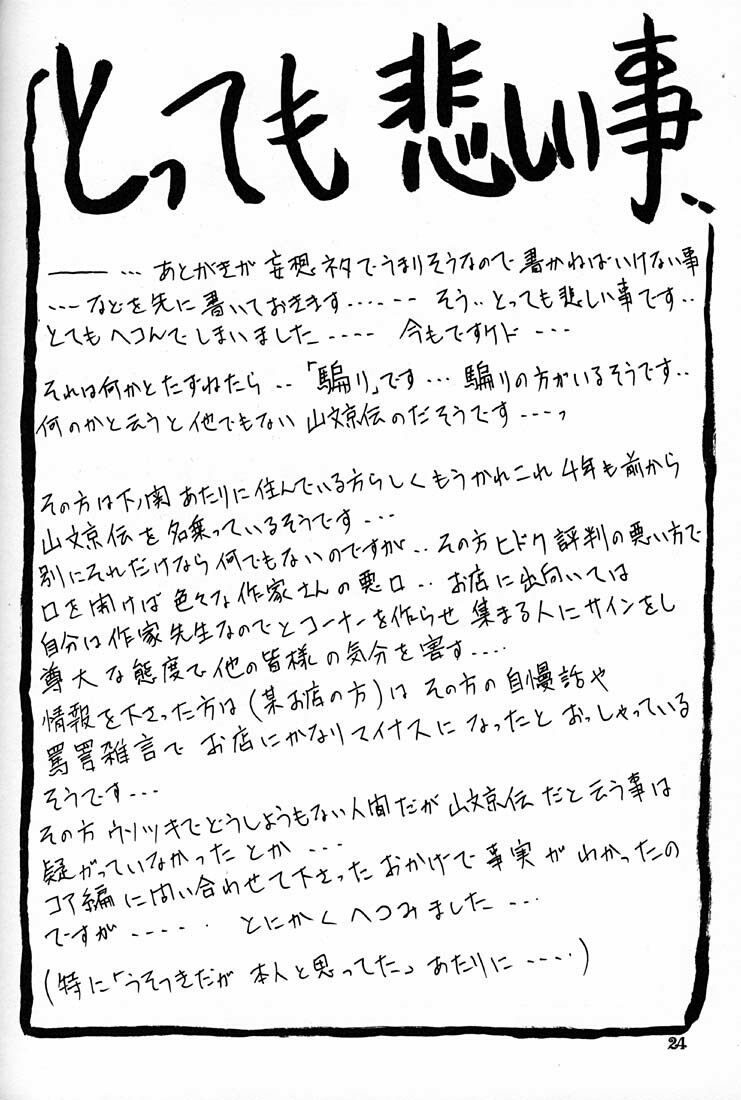 とっても悲しい事‥
―― … あとがきが 妄想ネタでうまりそうなので 書かねばいけない事
…などを先に書いておきます…… そう‥とっても悲しい事です‥
とてもヘコんでしまいました…… 今もですケド …
それは何かとたずねたら‥「騙り」です… 騙りの方がいるそうです‥
何のかと云うと他でもない 山文京伝のだそうです…っ
その方は下ノ関あたりに住んでいる方らしくもうかれこれ 4年も前から
山文京伝を名乗っているそうです…
別にそれだけなら何でもないのですが‥その方ヒドク評判の悪い方で
口を開けば色々な作家さんの悪口‥ お店に出向いては
自分は作家先生なのでとコーナーを作らせ 集まる人にサインをし
尊大な態度で他の皆様の気分を害す‥‥
情報を下さった方は(某お店の方)は その方の自慢話や
罵詈雑言で お店にかなりマイナスに なったと おっしゃっている
そうです…
その方 ウソツキでどうしようもない人間だが 山文京伝だと云う事は
疑がっていなかったとか …
コア編に問い合わせて下さった おかげで 事実が わかったの
ですが ‥‥‥ とにかく へコみました …
(特に「うそつきだが 本人と思ってた」あたりに ‥‥)
24